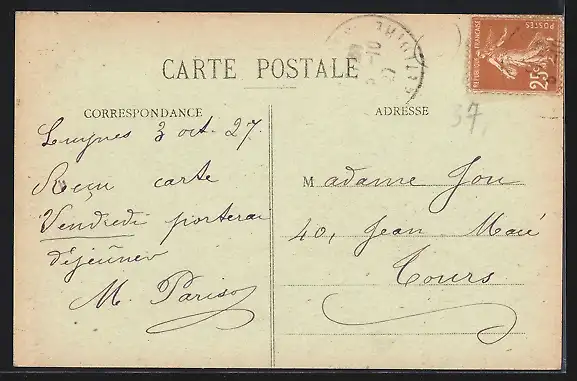 CARTE POSTALE
CORRESPONDANCE
Luynes 3 oct. 27.
Reçu carte
Vendredi porterai
déjeûner
M. Parisot
ADRESSE
Madame Jou
40, Jean Macé
Tours
37.
REPUBLIQUE FRANÇAISE
POSTES
25c